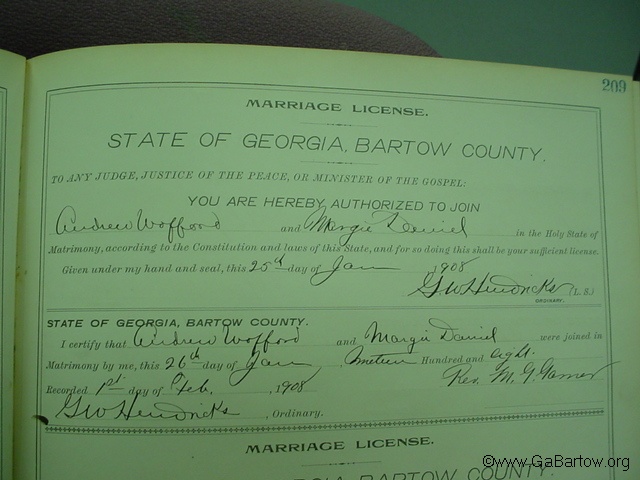 209
MARRIAGE LICENSE.
STATE OF GEORGIA, BARTOW COUNTY.
TO ANY JUDGE, JUSTICE OF THE PEACE, OR MINISTER OF THE GOSPEL:
YOU ARE HEREBY AUTHORIZED TO JOIN
Andrew Wofford and Margie Daniel in the Holy State of
Matrimony, according to the Constitution and laws of this State, and for so doing this shall be your sufficient license.
Given under my hand and seal, this 25th day of Jan 1908
G W Hendricks (L. S.)
ORDINARY.
STATE OF GEORGIA, BARTOW COUNTY.
I certify that Andrew Wofford and Margie Daniel were joined in
Matrimony by me, this 26th day of Jan, Nineteen Hundred and eight.
Recorded 1st day of Feb, 1908 Rev. M. G. Garner
G W Hendricks, Ordinary.
MARRIAGE LICENSE.
GEORGIA, BARTOW COUNTY.
©www.GaBartow.org